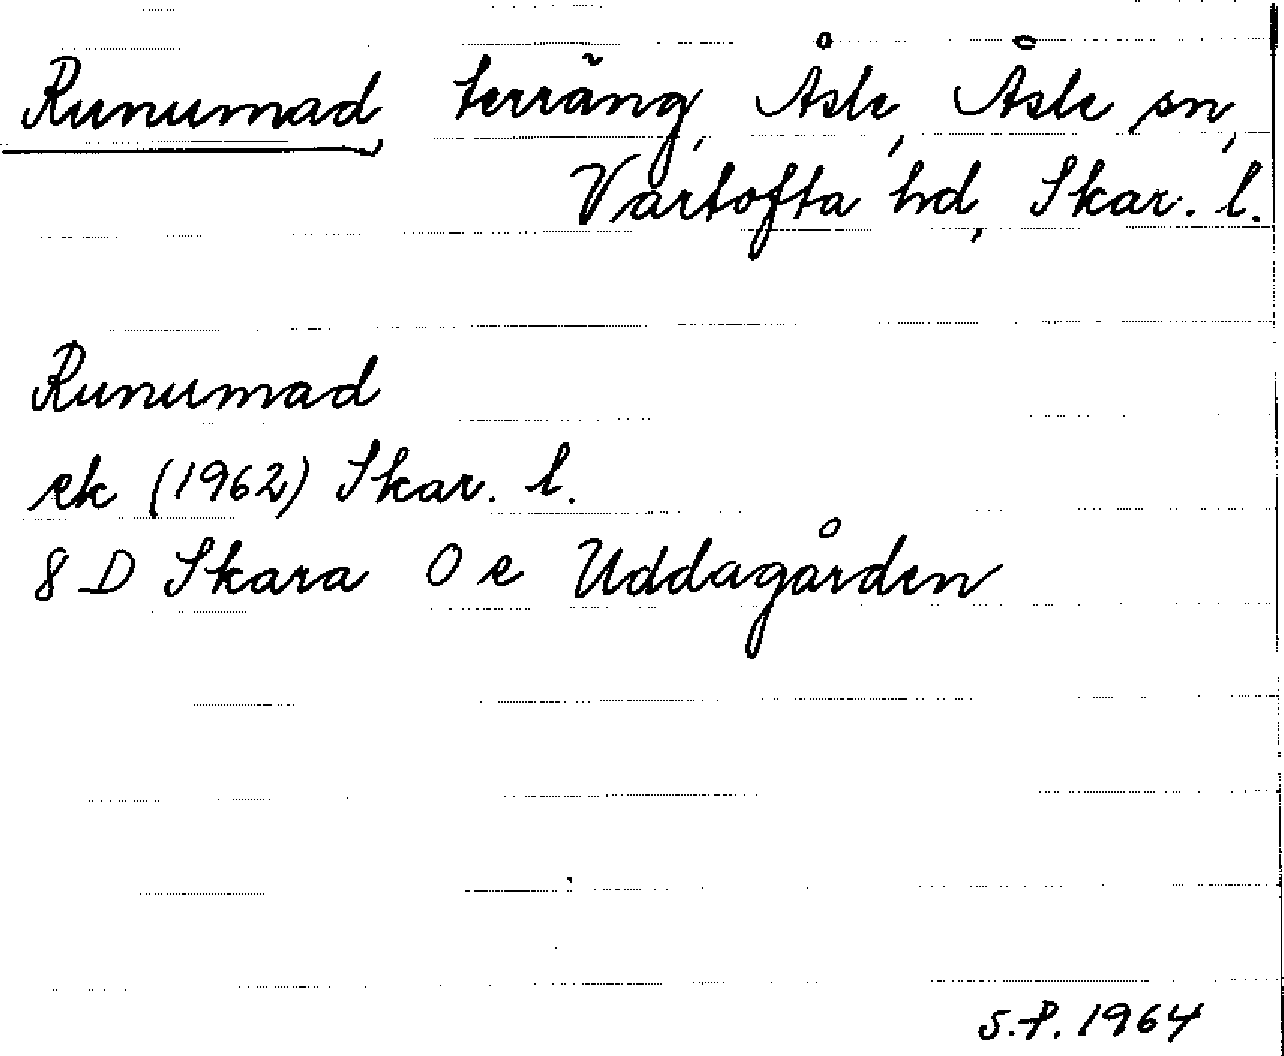 Runumad, terräng, Åsle, Åsle sn,
Vartofta hd, Skar. l.
Runumad
ek (1962) Skar. l.
8 D Skara 0 e Uddagården
S.P. 1964